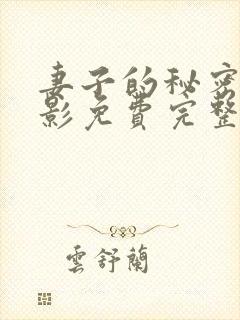 妻子的秘密
影免费完整
雲舒蘭